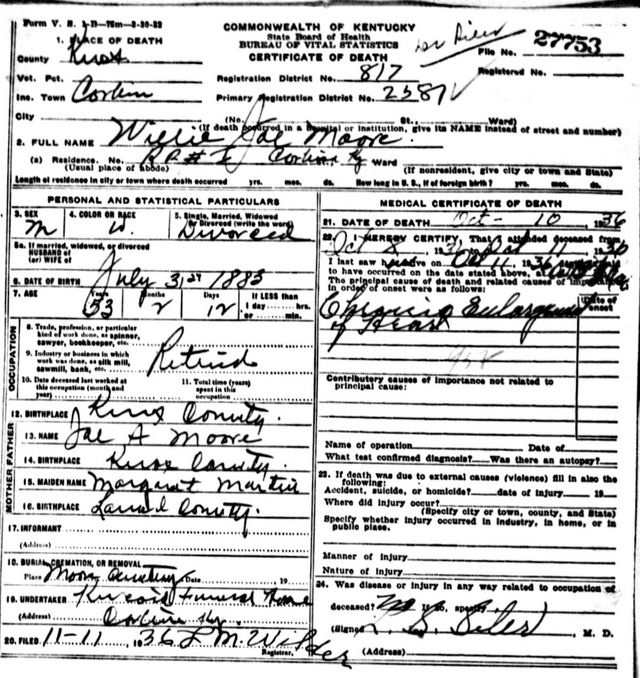 Form V. S. 1-D-75m-8-30-32
COMMONWEALTH OF KENTUCKY
State Board of Health
BUREAU OF VITAL STATISTICS
CERTIFICATE OF DEATH
File No. 27753
Registered No.
1. PLACE OF DEATH
County Knox
Vot. Pct.
Registration District No. 817
Inc. Town Corbin
Primary Registration District No. 2587
City (No. St., Ward)
(If death occurred in a hospital or institution, give its NAME instead of street and number)
2. FULL NAME Willie Joe Moore
(a) Residence. No. RR# Corbin Ky Ward
(Usual place of abode) (If nonresident, give city or town and State)
Length of residence in city or town where death occurred yrs. mos. ds. How long in U. S., if of foreign birth? yrs. mos. ds.
PERSONAL AND STATISTICAL PARTICULARS
3. SEX M
4. COLOR OR RACE W.
5. Single, Married, Widowed or Divorced (write the word) Divorced
5a. If married, widowed, or divorced
HUSBAND of
(or) WIFE of
6. DATE OF BIRTH July 1883
7. AGE Years 53 Months 2 Days 12 If LESS than 1 day hrs. or min.
OCCUPATION
8. Trade, profession, or particular kind of work done, as spinner, sawyer, bookkeeper, etc.
9. Industry or business in which work was done, as silk mill, sawmill, bank, etc. Retired
10. Date deceased last worked at this occupation (month and year)
11. Total time (years) spent in this occupation
12. BIRTHPLACE Knox County.
FATHER
13. NAME Joe A Moore
14. BIRTHPLACE Knox County.
MOTHER
15. MAIDEN NAME Margaret Martin
16. BIRTHPLACE Laurel County.
17. INFORMANT
(Address)
18. BURIAL, CREMATION, OR REMOVAL
Place Moore Cemetery Date , 19
19. UNDERTAKER Funeral Home
(Address) Corbin Ky.
20. FILED 11-11, 1936 L M. Wilder
Registrar.
MEDICAL CERTIFICATE OF DEATH
21. DATE OF DEATH Oct- 10, 1936
22. I HEREBY CERTIFY, That I attended deceased from
I last saw alive on
to have occurred on the date stated above, at
The principal cause of death and related causes of importance in order of onset were as follows:
Date of onset
Chronic Enlargement
of Heart
Contributory causes of importance not related to principal cause:
Name of operation Date of
What test confirmed diagnosis? Was there an autopsy?
23. If death was due to external causes (violence) fill in also the following:
Accident, suicide, or homicide? date of injury 19
Where did injury occur?
(Specify city or town, county, and State)
Specify whether injury occurred in industry, in home, or in public place.
Manner of injury
Nature of injury
24. Was disease or injury in any way related to occupation of deceased? If so, specify
(Signed) L. S. Siler, M. D.
(Address)